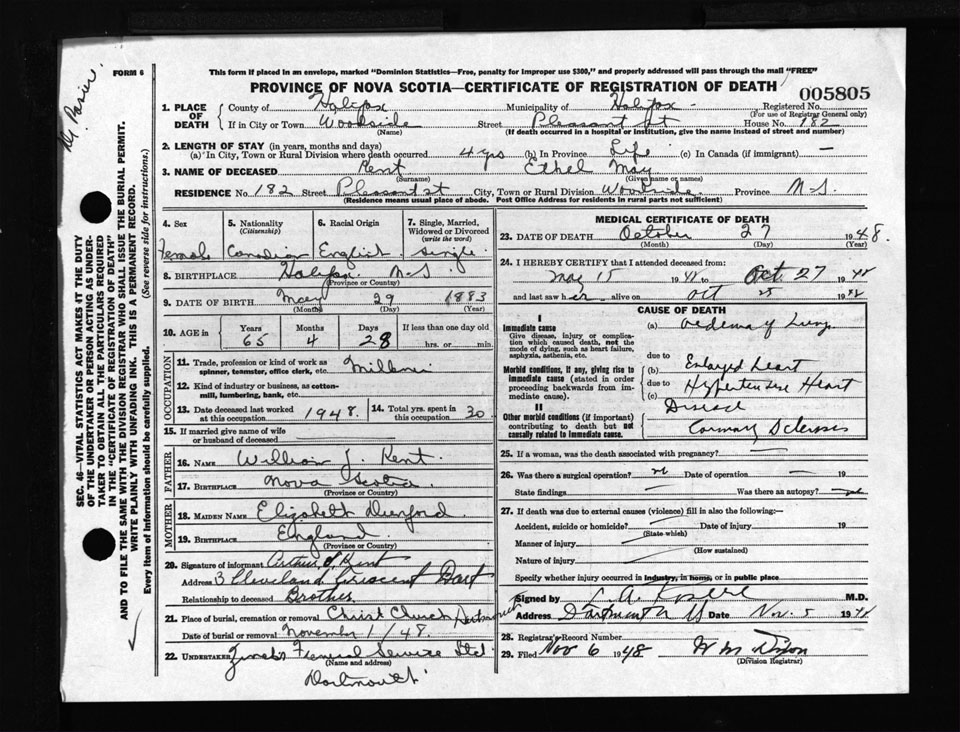 FORM 6
This form if placed in an envelope, marked "Dominion Statistics—Free, penalty for improper use $300," and properly addressed will pass through the mail "FREE"
PROVINCE OF NOVA SCOTIA—CERTIFICATE OF REGISTRATION OF DEATH
005805
1. PLACE OF DEATH County of Halifax Municipality of Halifax Registered No.
(For use of Registrar General only)
If in City or Town Woodside Street Pleasant St House No. 182
(Name) (If death occurred in a hospital or institution, give the name instead of street and number)
2. LENGTH OF STAY (in years, months and days)
(a) In City, Town or Rural Division where death occurred 4 yrs (b) In Province Life (c) In Canada (if immigrant) —
3. NAME OF DECEASED Kent Ethel May
(Surname) (Given name or names)
RESIDENCE No. 182 Street Pleasant St City, Town or Rural Division Woodside Province N-S.
(Residence means usual place of abode. Post Office Address for residents in rural parts not sufficient)
4. Sex 5. Nationality (Citizenship) 6. Racial Origin 7. Single, Married, Widowed or Divorced (write the word)
Female Canadian English Single
8. BIRTHPLACE Halifax N-S.
(Province or Country)
9. DATE OF BIRTH May 29 1883
(Month) (Day) (Year)
10. AGE in Years Months Days If less than one day old
65 4 28 hrs. or min.
OCCUPATION
11. Trade, profession or kind of work as spinner, teamster, office clerk, etc.
12. Kind of industry or business, as cotton-mill, lumbering, bank, etc.
13. Date deceased last worked at this occupation 1948. 14. Total yrs. spent in this occupation 30
15. If married give name of wife or husband of deceased
FATHER
16. NAME William J. Kent.
17. BIRTHPLACE Nova Scotia
(Province or Country)
MOTHER
18. MAIDEN NAME Elizabeth
19. BIRTHPLACE England
(Province or Country)
20. Signature of informant Arthur J. Kent
Address 3 Cleveland Crescent Dart
Relationship to deceased Brother
21. Place of burial, cremation or removal Christ Church Dartmouth
Date of burial or removal November 1/48.
22. UNDERTAKER Funeral Service Ltd.
(Name and address)
Dartmouth
MEDICAL CERTIFICATE OF DEATH
23. DATE OF DEATH October 27 1948.
(Month) (Day) (Year)
24. I HEREBY CERTIFY that I attended deceased from:
May 15 to Oct. 27 1948
and last saw her alive on Oct 25 1948
CAUSE OF DEATH
I
Immediate cause
Give disease, injury or complication which caused death, not the mode of dying, such as heart failure, asphyxia, asthenia, etc.
(a) Oedema of Lung
due to
Morbid conditions, if any, giving rise to immediate cause (stated in order proceeding backwards from immediate cause).
(b) Enlarged heart
due to Hypertensive Heart
(c) Disease
II
Other morbid conditions (if important) contributing to death but not causally related to immediate cause.
Coronary Sclerosis
25. If a woman, was the death associated with pregnancy?
26. Was there a surgical operation? Date of operation 19
State findings Was there an autopsy?
27. If death was due to external causes (violence) fill in also the following:—
Accident, suicide or homicide? Date of injury 19
(State which)
Manner of injury
(How sustained)
Nature of injury
Specify whether injury occurred in industry, in home, or in public place
Signed by M.D.
Address Dartmouth NS Date Nov. 5 1948
28. Registrar's Record Number
29. Filed Nov 6 1948 W M Dixon
(Division Registrar)
SEC. 46—VITAL STATISTICS ACT MAKES IT THE DUTY
OF THE UNDERTAKER OR PERSON ACTING AS UNDER-
TAKER TO OBTAIN ALL THE PARTICULARS REQUIRED
IN THE "CERTIFICATE OF REGISTRATION OF DEATH"
AND TO FILE THE SAME WITH THE DIVISION REGISTRAR WHO SHALL ISSUE THE BURIAL PERMIT.
WRITE PLAINLY WITH UNFADING INK. THIS IS A PERMANENT RECORD.
Every item of information should be carefully supplied. (See reverse side for instructions.)